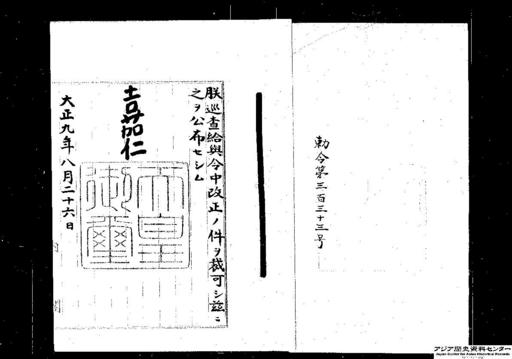 勅令第三百三十三号
朕巡査給與令中改正ノ件ヲ裁可シ茲ニ
之ヲ公布セシム
嘉仁
天皇御璽
大正九年八月二十六日
アジア歴史資料センター
Japan Center for Asian Historical Records